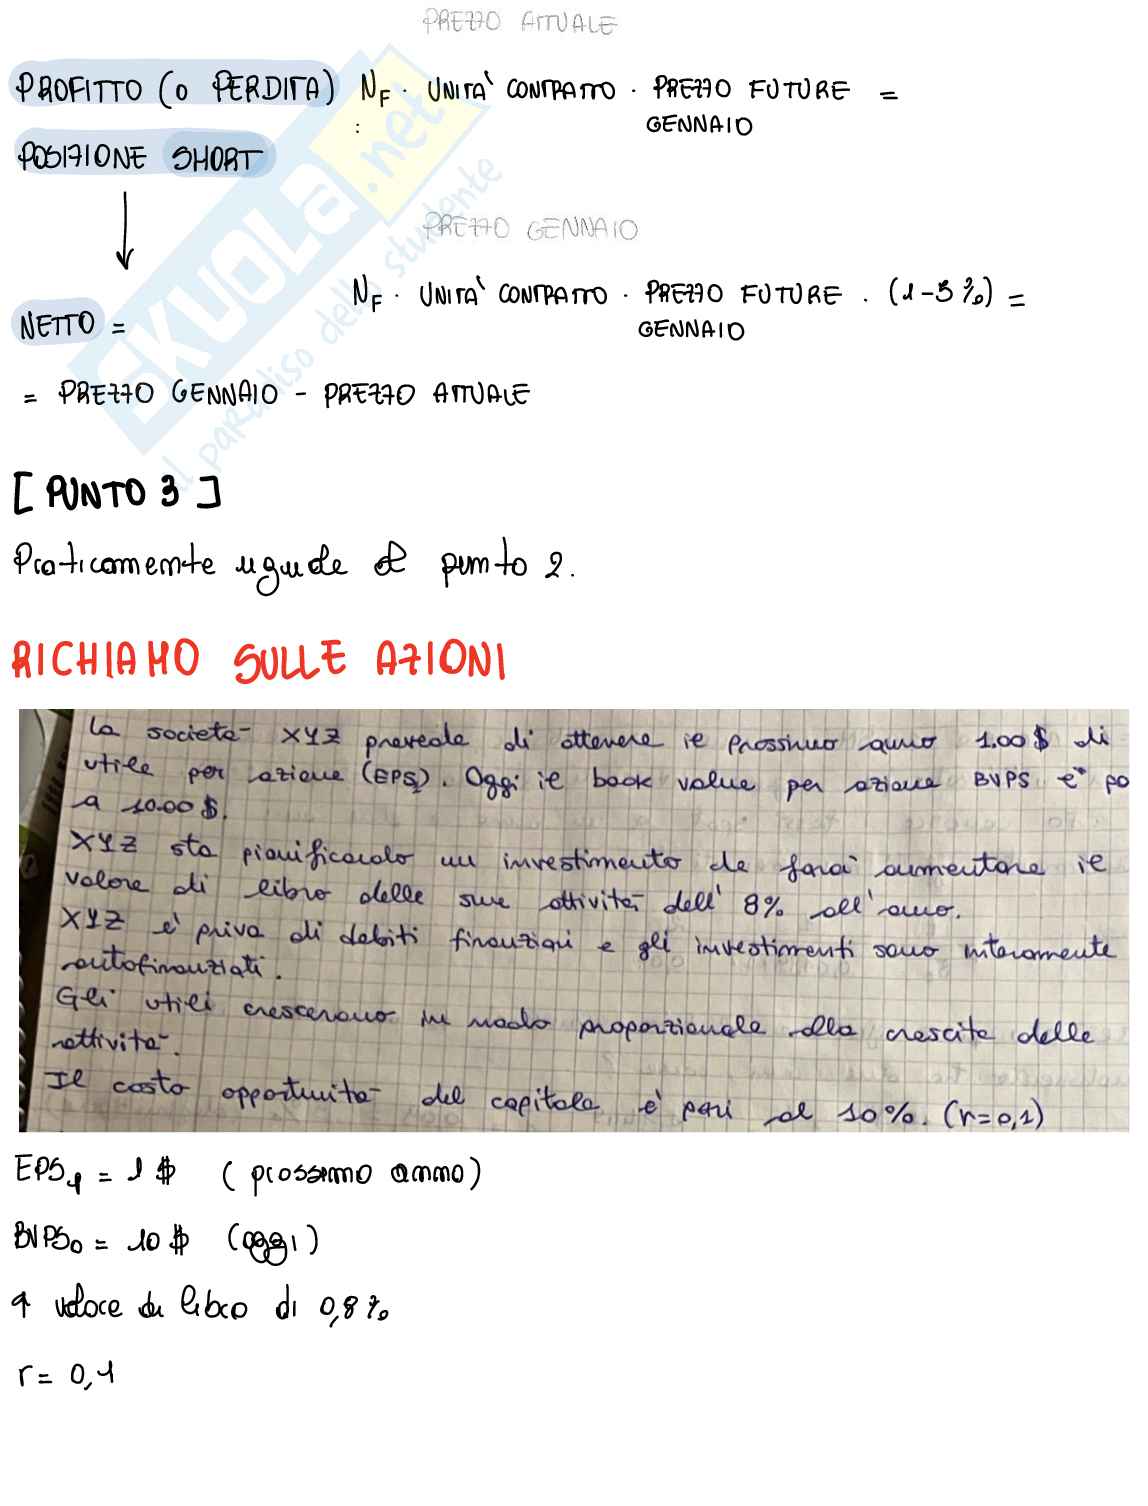 PREZZO ATTUALE
PROFITTO (O PERDITA) NF · UNITÀ CONTRATTO · PREZZO FUTURE =
GENNAIO
:
POSIZIONE SHORT
PREZZO GENNAIO
NF · UNITÀ CONTRATTO · PREZZO FUTURE · (1-3%) =
GENNAIO
NETTO =
= PREZZO GENNAIO - PREZZO ATTUALE
SKUOLA.net
il paradiso dello studente
[ PUNTO 3 ]
Praticamente uguale al punto 2.
RICHIAMO SULLE AZIONI
La società XYZ prevede di ottenere il prossimo anno 1.00$ di
utile per azione (EPS). Oggi il book value per azione BVPS è pa
a 10.00$.
XYZ sta pianificando un investimento che farà aumentare il
valore di libro delle sue attività dell'8% all'anno.
XYZ è priva di debiti finanziari e gli investimenti sono interamente
autofinanziati.
Gli utili cresceranno in modo proporzionale alla crescita delle
attività.
Il costo opportunità del capitale è pari al 10%. (r=0,1)
EPS1 = 1$ (prossimo anno)
BVPS0 = 10$ (oggi)
↑ valore di libro di 0,8%
r = 0,1